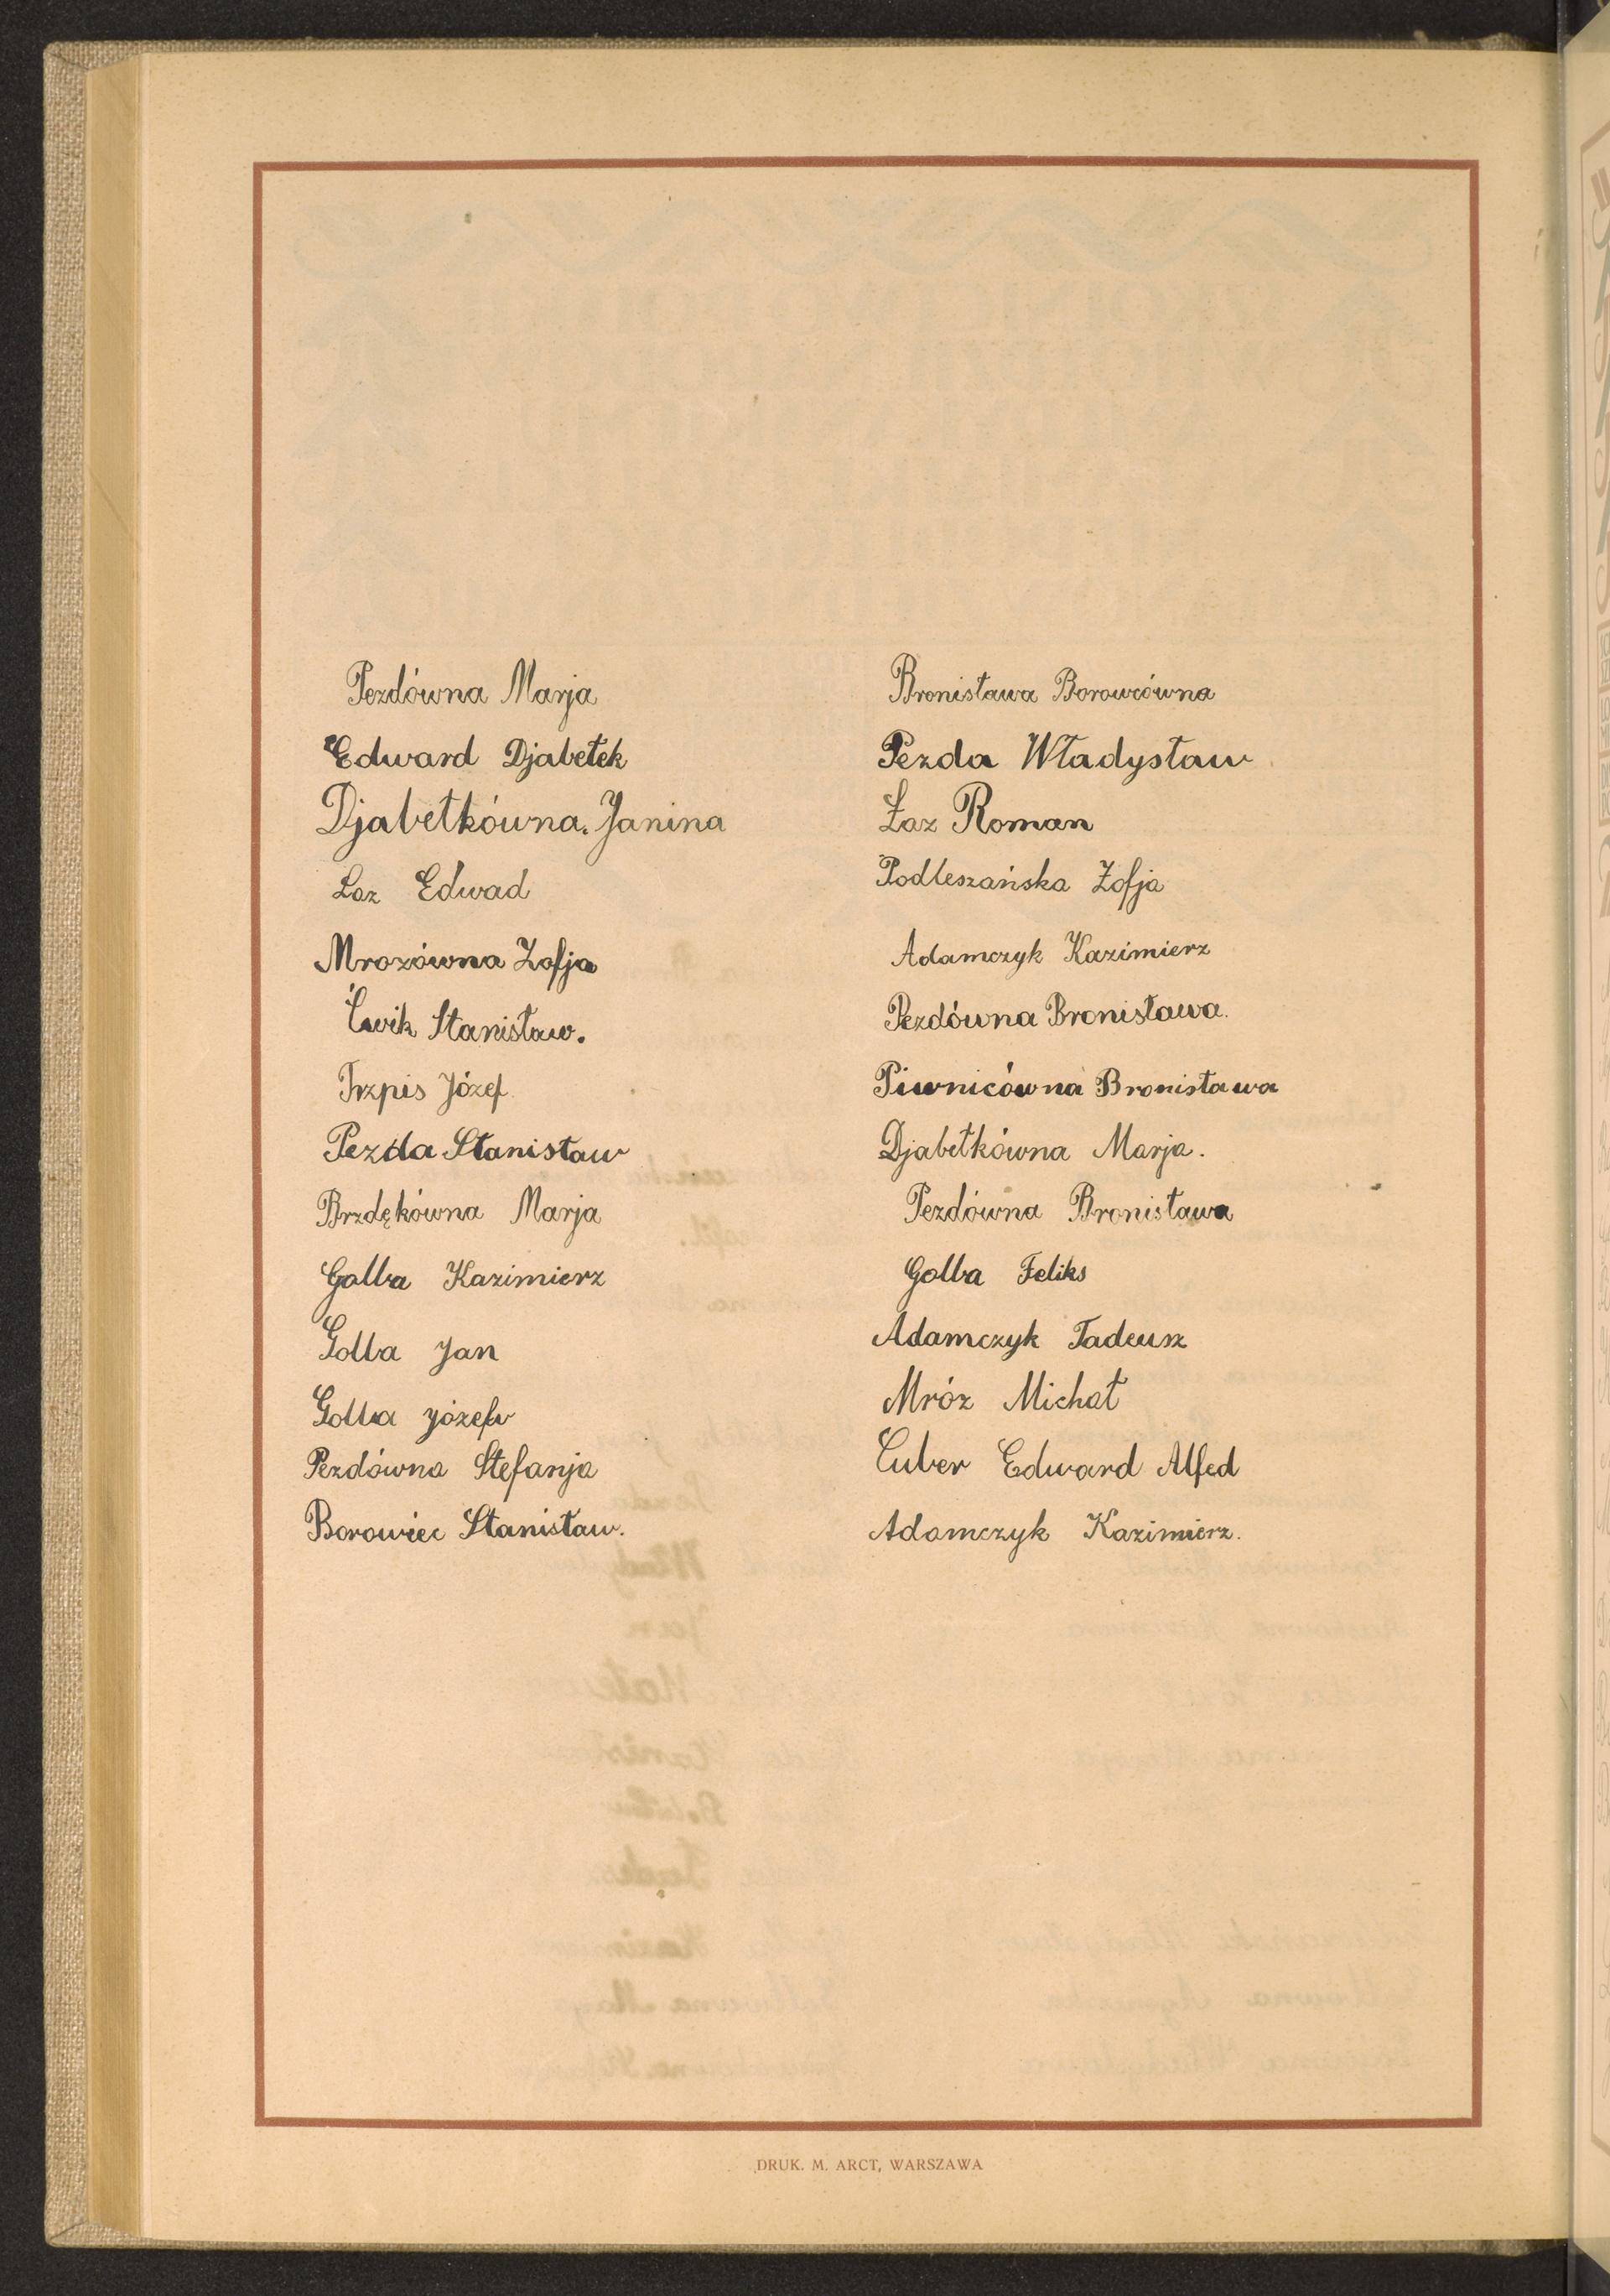 Pezdówna Marja
Edward Djabełek
Djabełkówna. Janina
Łoz Edwad
Mrozówna Zofja
Ćwik Stanisław.
Trzpis Józef
Pezda Stanisław
Brzdękówna Marja
Golba Kazimierz
Golba Jan
Golba Józefw
Pezdówna Stefanja
Borowiec Stanisław.
Bronisława Borowcówna
Pezda Władysław
Łaz Roman
Podleszańska Zofja
Adamczyk Kazimierz
Pezdówna Bronisława.
Piwnicówna Bronisława
Djabełkówna Marja.
Pezdówna Bronisława
Golba Feliks
Adamczyk Tadeusz
Mróz Michał
Cuber Edward Alfed
Adamczyk Kazimierz.
DRUK. M. ARCT, WARSZAWA